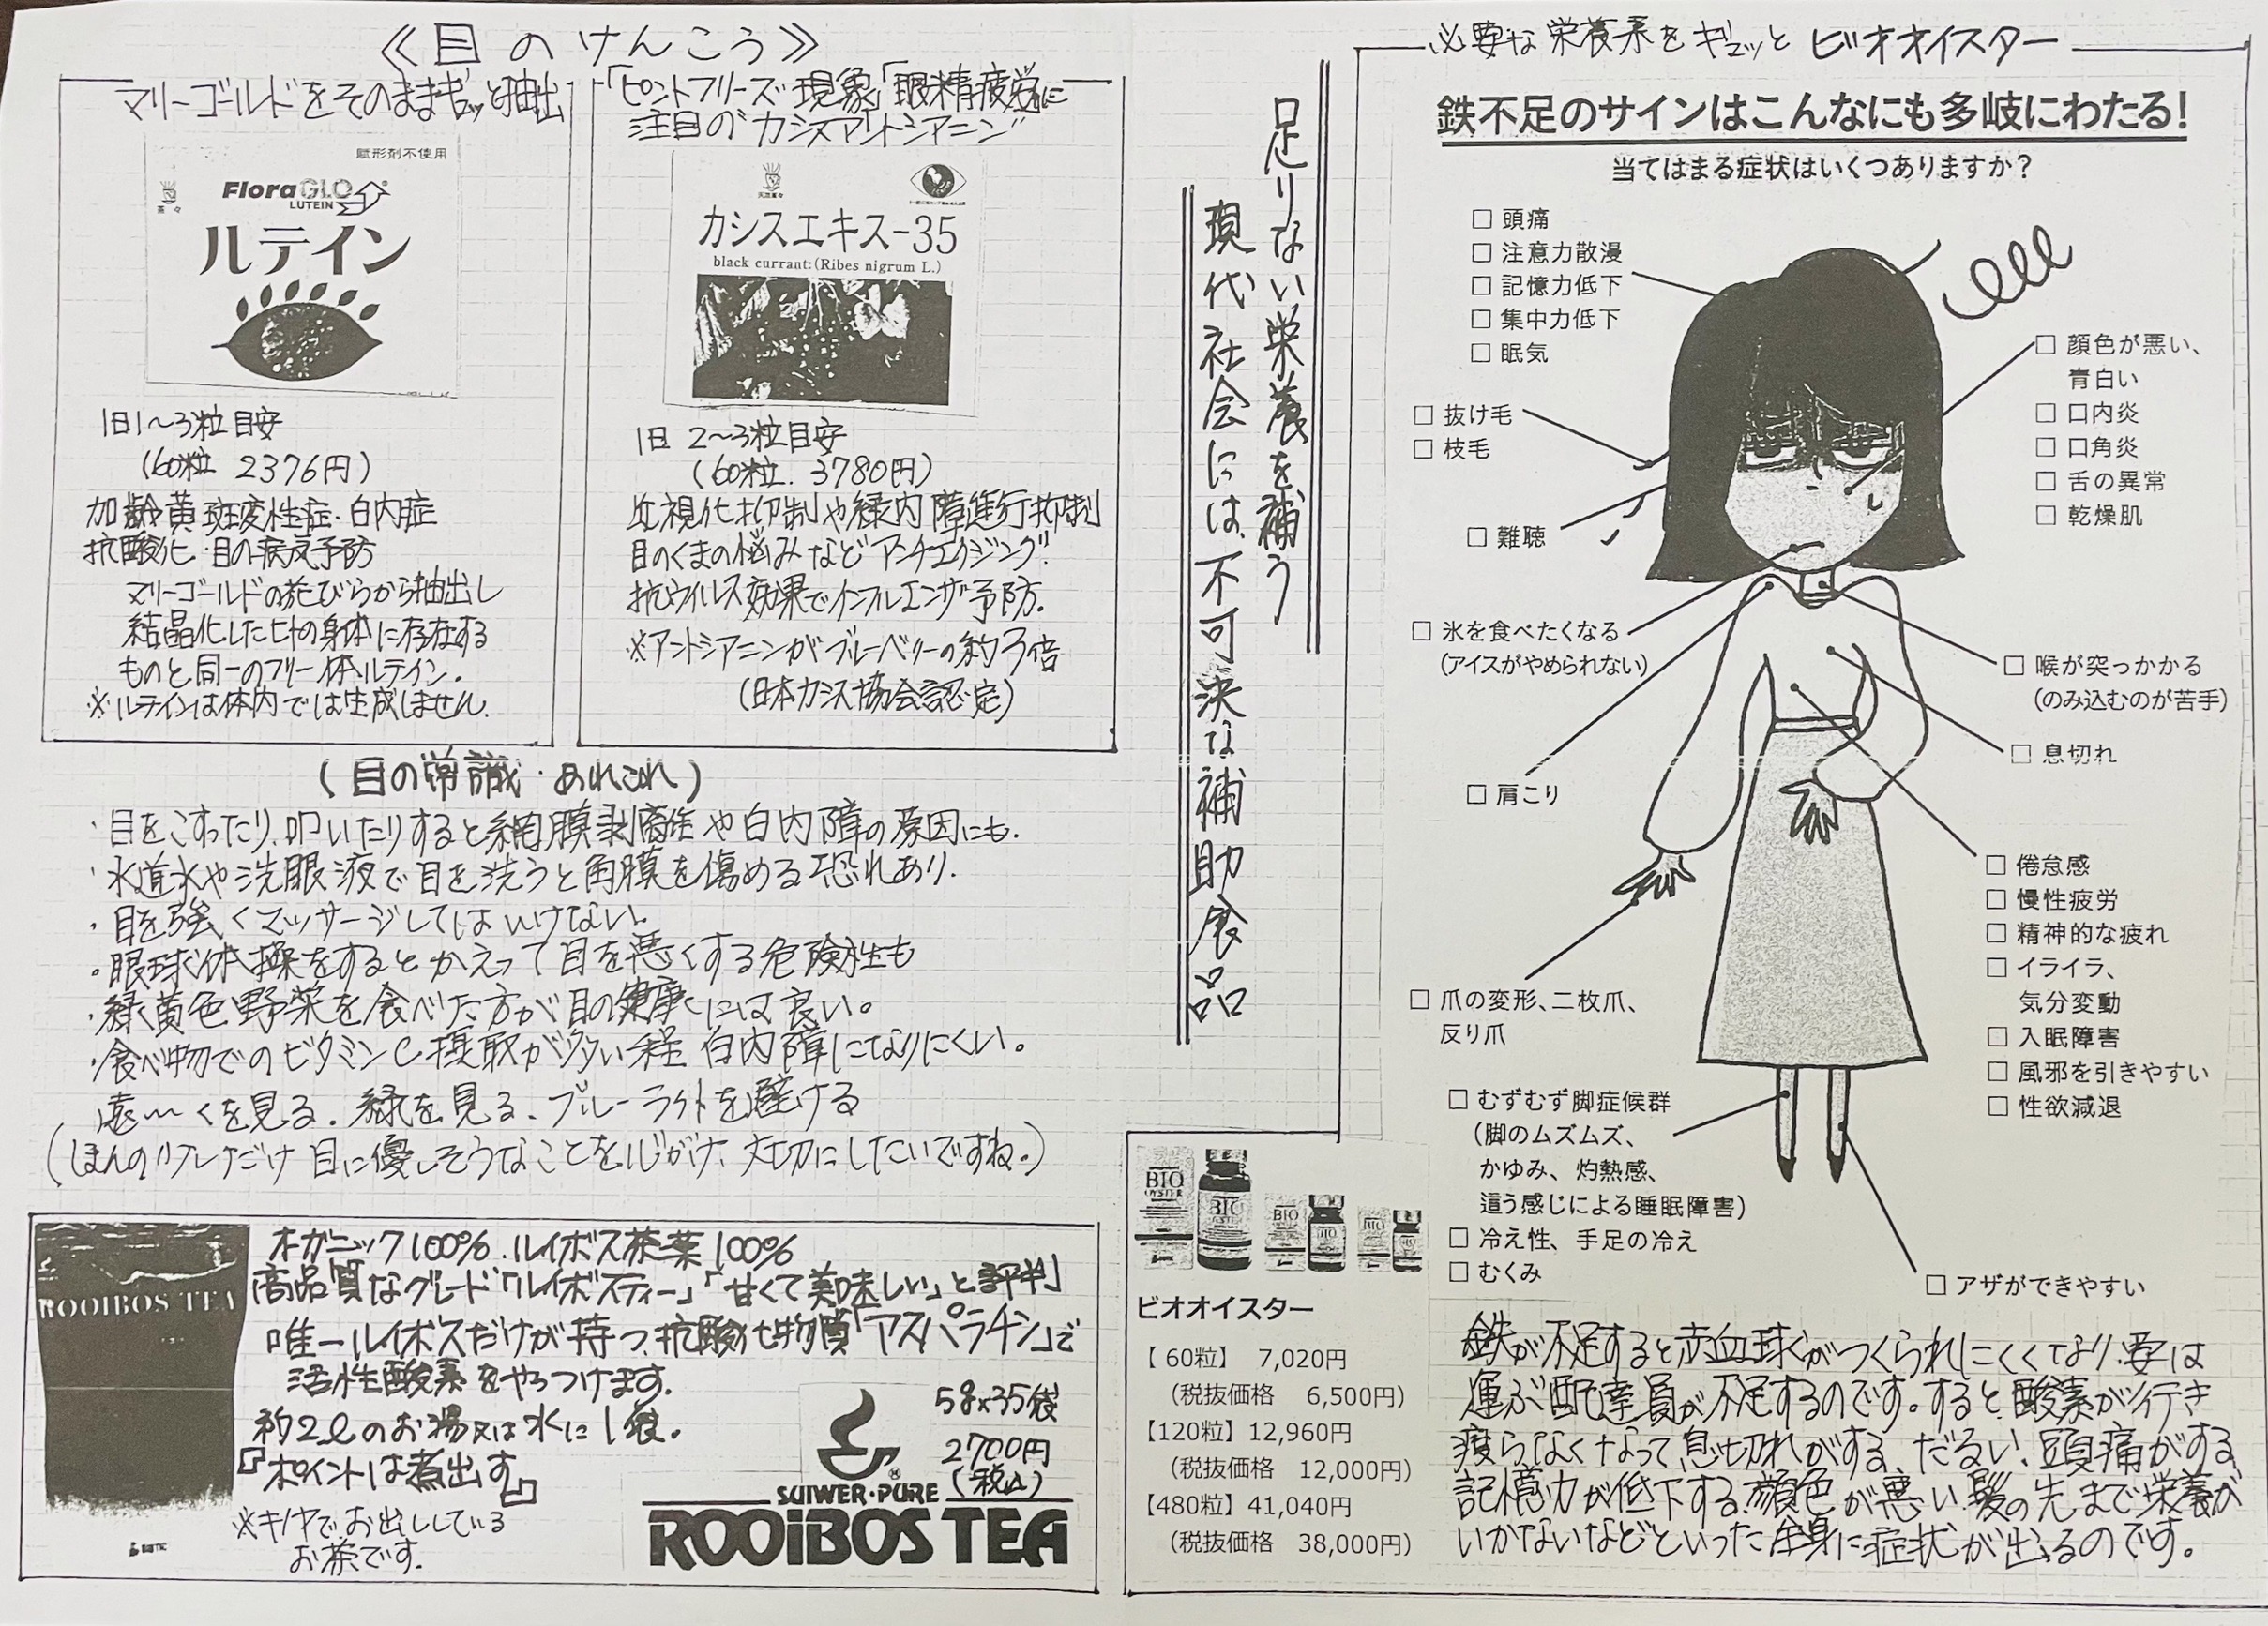 《目のけんこう》
マリーゴールドをそのままギュッと抽出
賦形剤不使用
FloraGLO
LUTEIN
ルテイン
1日1〜3粒目安
(60粒 2376円)
加齢黄斑変性症・白内症
抗酸化・目の病気予防
マリーゴールドの花びらから抽出し
結晶化したヒトの身体に存在する
ものと同一のフリー体ルテイン.
※ルテインは体内では生成しません.
「ピントフリーズ現象」「眼精疲労」に
注目の"カシスアントシアニン"
カシスエキス-35
black currant:(Ribes nigrum L.)
1日 2〜3粒目安
(60粒. 3780円)
近視化抑制や緑内障進行抑制
目のくまの悩みなど"アンチエイジング".
抗ウイルス効果でインフルエンザ予防.
※アントシアニンがブルーベリーの約3倍
(日本カシス協会認定)
(目の常識・あれこれ)
・目をこすったり、叩いたりすると網膜剥離症や白内障の原因にも.
・水道水や洗眼液で目を洗うと角膜を傷める恐れあり.
・目を強くマッサージしてはいけない.
・眼球体操をするとかえって目を悪くする危険性も
・緑黄色野菜を食べた方が目の健康には良い。
・食べ物でのビタミンC摂取が多い程 白内障になりにくい。
遠〜くを見る.緑を見る、ブルーライトを避ける
(ほんの少しだけ 目に優しそうなことを心がけ、大切にしたいですね。)
ROOIBOS TEA
オーガニック100%.ルイボス茶葉100%
高品質なグレード「ルイボスティー」「甘くて美味しい」と評判
唯一ルイボスだけが持つ抗酸化物質「アスパラチン」で
活性酸素をやっつけます.
約2ℓのお湯又は水に1袋.
『ポイントは煮出す』
※キノヤでお出ししている
お茶です.
5g×35袋
2700円
(税込)
SUIWER・PURE
ROOiBOS TEA
足りない栄養を補う
現代社会には不可決な補助食品
必要な栄養素をギュッと ビオオイスター
鉄不足のサインはこんなにも多岐にわたる!
当てはまる症状はいくつありますか?
□ 頭痛
□ 注意力散漫
□ 記憶力低下
□ 集中力低下
□ 眠気
□ 抜け毛
□ 枝毛
□ 難聴
□ 氷を食べたくなる
(アイスがやめられない)
□ 肩こり
□ 爪の変形、二枚爪、
反り爪
□ むずむず脚症候群
(脚のムズムズ、
かゆみ、灼熱感、
這う感じによる睡眠障害)
□ 冷え性、手足の冷え
□ むくみ
□ 顔色が悪い、
青白い
□ 口内炎
□ 口角炎
□ 舌の異常
□ 乾燥肌
□ 喉が突っかかる
(のみ込むのが苦手)
□ 息切れ
□ 倦怠感
□ 慢性疲労
□ 精神的な疲れ
□ イライラ、
気分変動
□ 入眠障害
□ 風邪を引きやすい
□ 性欲減退
□ アザができやすい
BIO
OYSTER
BIO
BIO
BIO
BIO
ビオオイスター
【 60粒】 7,020円
(税抜価格 6,500円)
【120粒】12,960円
(税抜価格 12,000円)
【480粒】41,040円
(税抜価格 38,000円)
鉄が不足すると赤血球がつくられにくくなり、要は
運ぶ配達員が不足するのです。すると酸素が行き
渡らなくなって、息切れがする、だるい、頭痛がする
記憶力が低下する.顔色が悪い 髪の先まで栄養が
いかないなどといった全身に症状が出るのです。